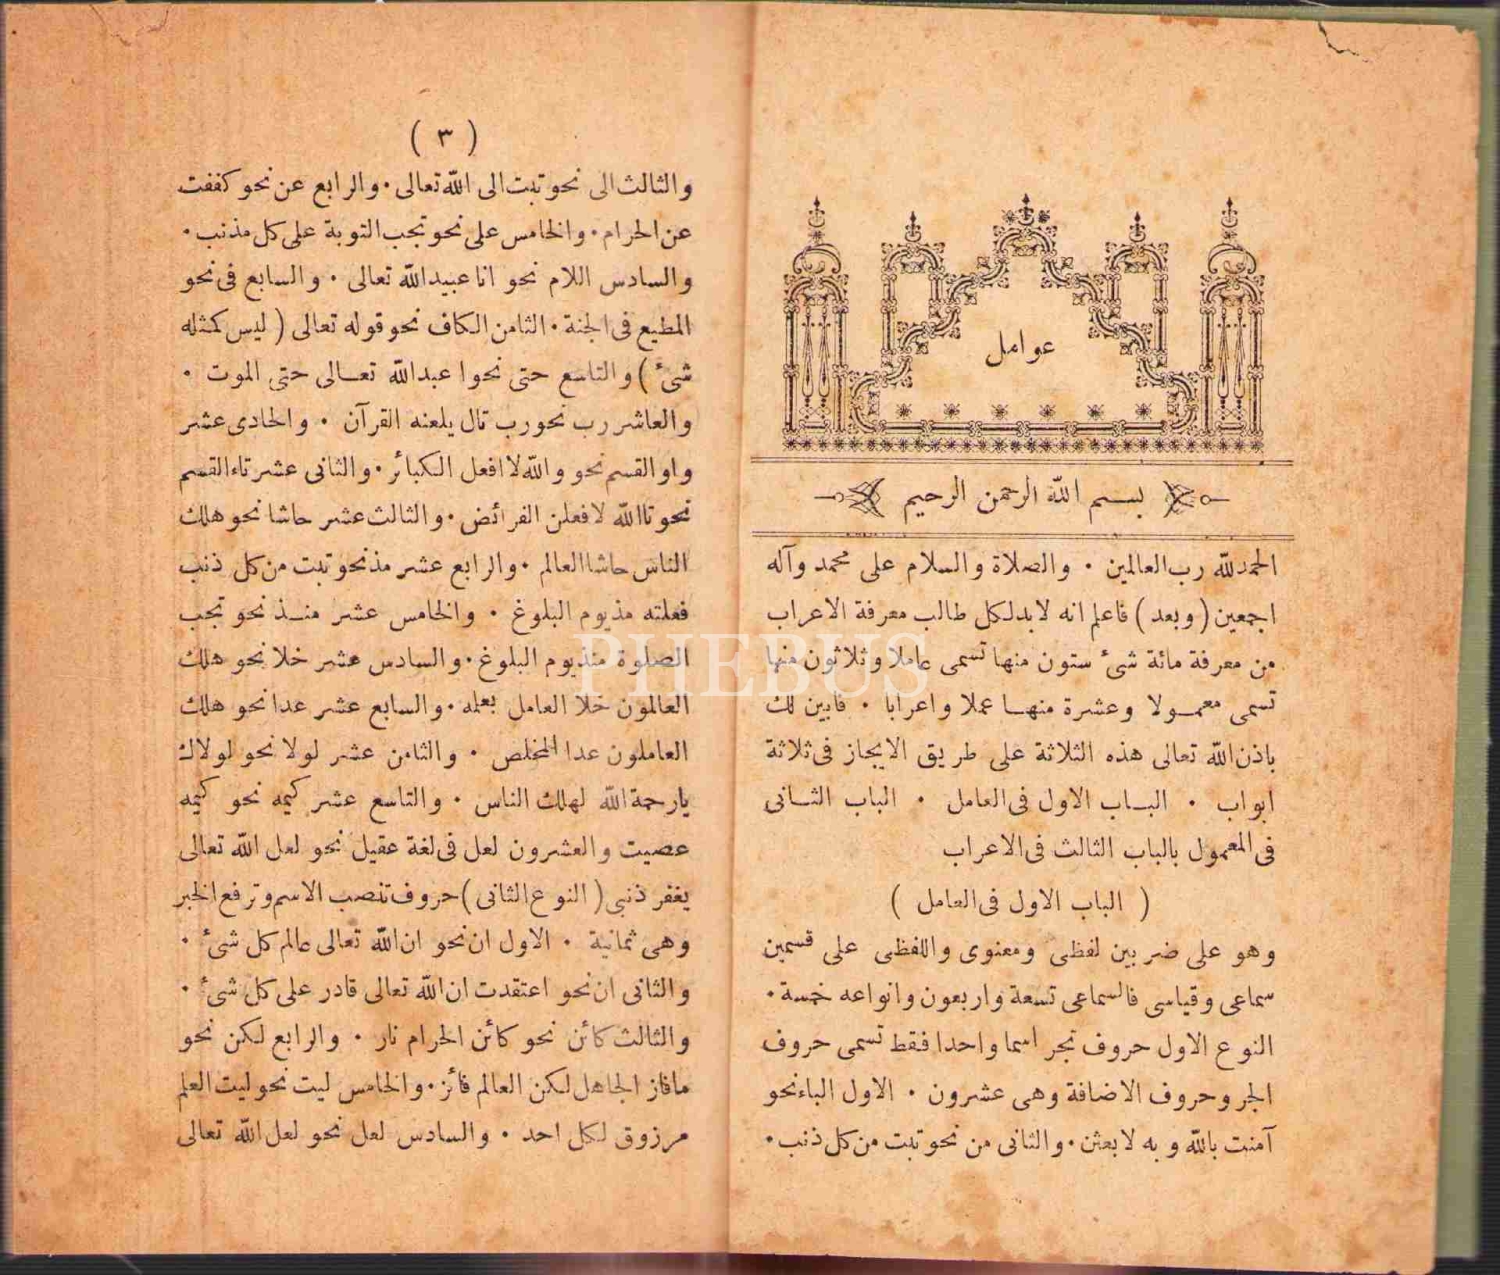 عوامل
بسم الله الرحمن الرحيم
الحمدلله رب العالمين . والصلاة والسلام على محمد وآله
اجمعين ( وبعد ) فاعلم انه لابدلكل طالب معرفة الاعراب
من معرفة مائة شئ ستون منها تسمى عاملا وثلاثون منها
تسمى معمولا وعشرة منها عملا واعرابا . فابين لك
باذن الله تعالى هذه الثلاثة على طريق الايجاز فى ثلاثة
ابواب . الباب الاول فى العامل . الباب الثانى
فى المعمول بالباب الثالث فى الاعراب
( الباب الاول فى العامل )
وهو على ضربين لفظى ومعنوى واللفظى على قسمين
سماعى وقياسى فالسماعى تسعة واربعون وانواعه خمسة .
النوع الاول حروف تجر اسما واحدا فقط تسمى حروف
الجر وحروف الاضافة وهى عشرون . الاول الباء نحو
آمنت بالله وبه لابعثن . والثانى من نحو تبت من كل ذنب .
( ٣ )
والثالث الى نحو تبت الى الله تعالى . والرابع عن نحو كففت
عن الحرام . والخامس على نحو تجب التوبة على كل مذنب .
والسادس اللام نحو انا عبيد الله تعالى . والسابع فى نحو
المطيع فى الجنة . الثامن الكاف نحو قوله تعالى ( ليس كمثله
شئ ) والتاسع حتى نحوا عبد الله تعالى حتى الموت .
والعاشر رب نحورب تال يلعنه القرآن . والحادى عشر
واو القسم نحو والله لا افعل الكبائر . والثانى عشر تاء القسم
نحو تاالله لافعلن الفرائض . والثالث عشر حاشا نحو هلك
الناس حاشا العالم . والرابع عشر مذ نحو تبت من كل ذنب
فعلته مذ يوم البلوغ . والخامس عشر منذ نحو تجب
الصلوة منذ يوم البلوغ . والسادس عشر خلا نحو هلك
العالمون خلا العامل بعلمه . والسابع عشر عدا نحو هلك
العاملون عدا المخلص . والثامن عشر لولا نحو لولاك
يارحمة الله لهلك الناس . والتاسع عشر كيمه نحو كيمه
عصيت والعشرون لعل فى لغة عقيل نحو لعل الله تعالى
يغفر ذنبى ( النوع الثانى ) حروف تنصب الاسم وترفع الخبر
وهى ثمانية . الاول ان نحو ان الله تعالى عالم كل شئ .
والثانى ان نحو اعتقدت ان الله تعالى قادر على كل شئ .
والثالث كائن نحو كائن الحرام نار . والرابع لكن نحو
مافاز الجاهل لكن العالم فائز . والخامس ليت نحو ليت العلم
مرزوق لكل احد . والسادس لعل نحو لعل الله تعالى
PHEBUS